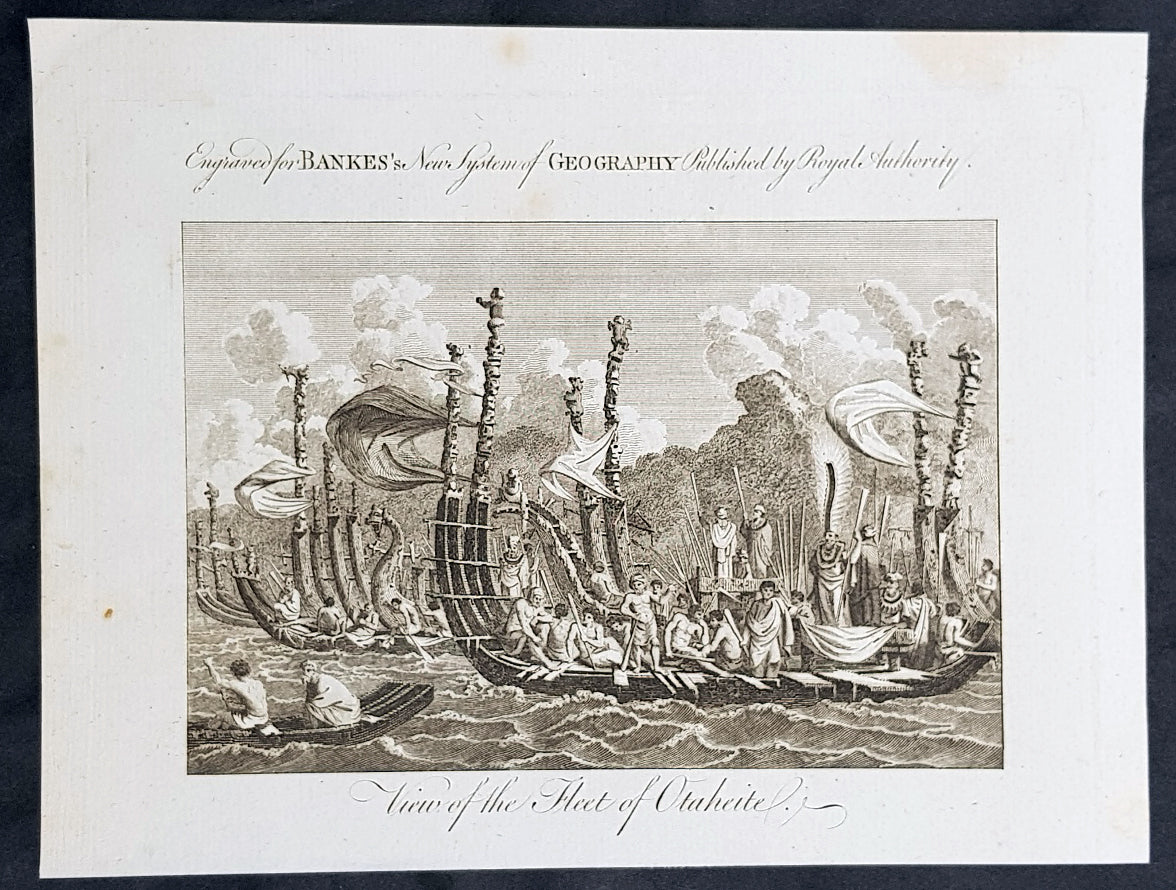 Engraved for BANKES's New System of GEOGRAPHY Published by Royal Authority.
View of the Fleet of Otaheite.